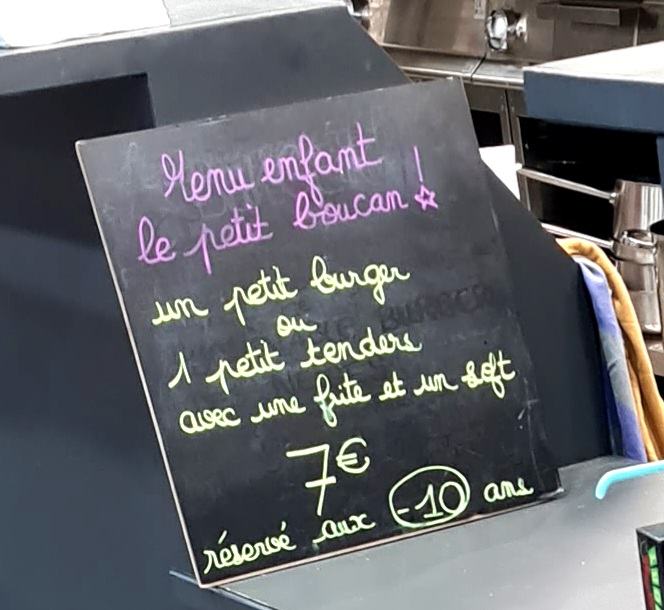 Menu enfant
le petit boucan !
un petit burger
ou
1 petit tenders
avec une frite et un soft
7€
réservé aux -10 ans